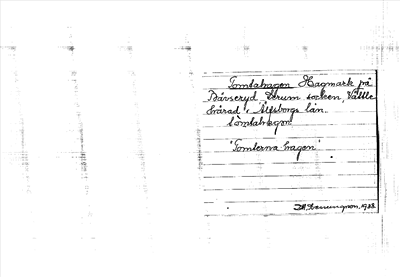 Tomtahagen Hagmark på
Bävseryd Skrum socken, Vättle
härad, Älfsborgs län.
tomtahagen
"Tomterna hagen"
1933